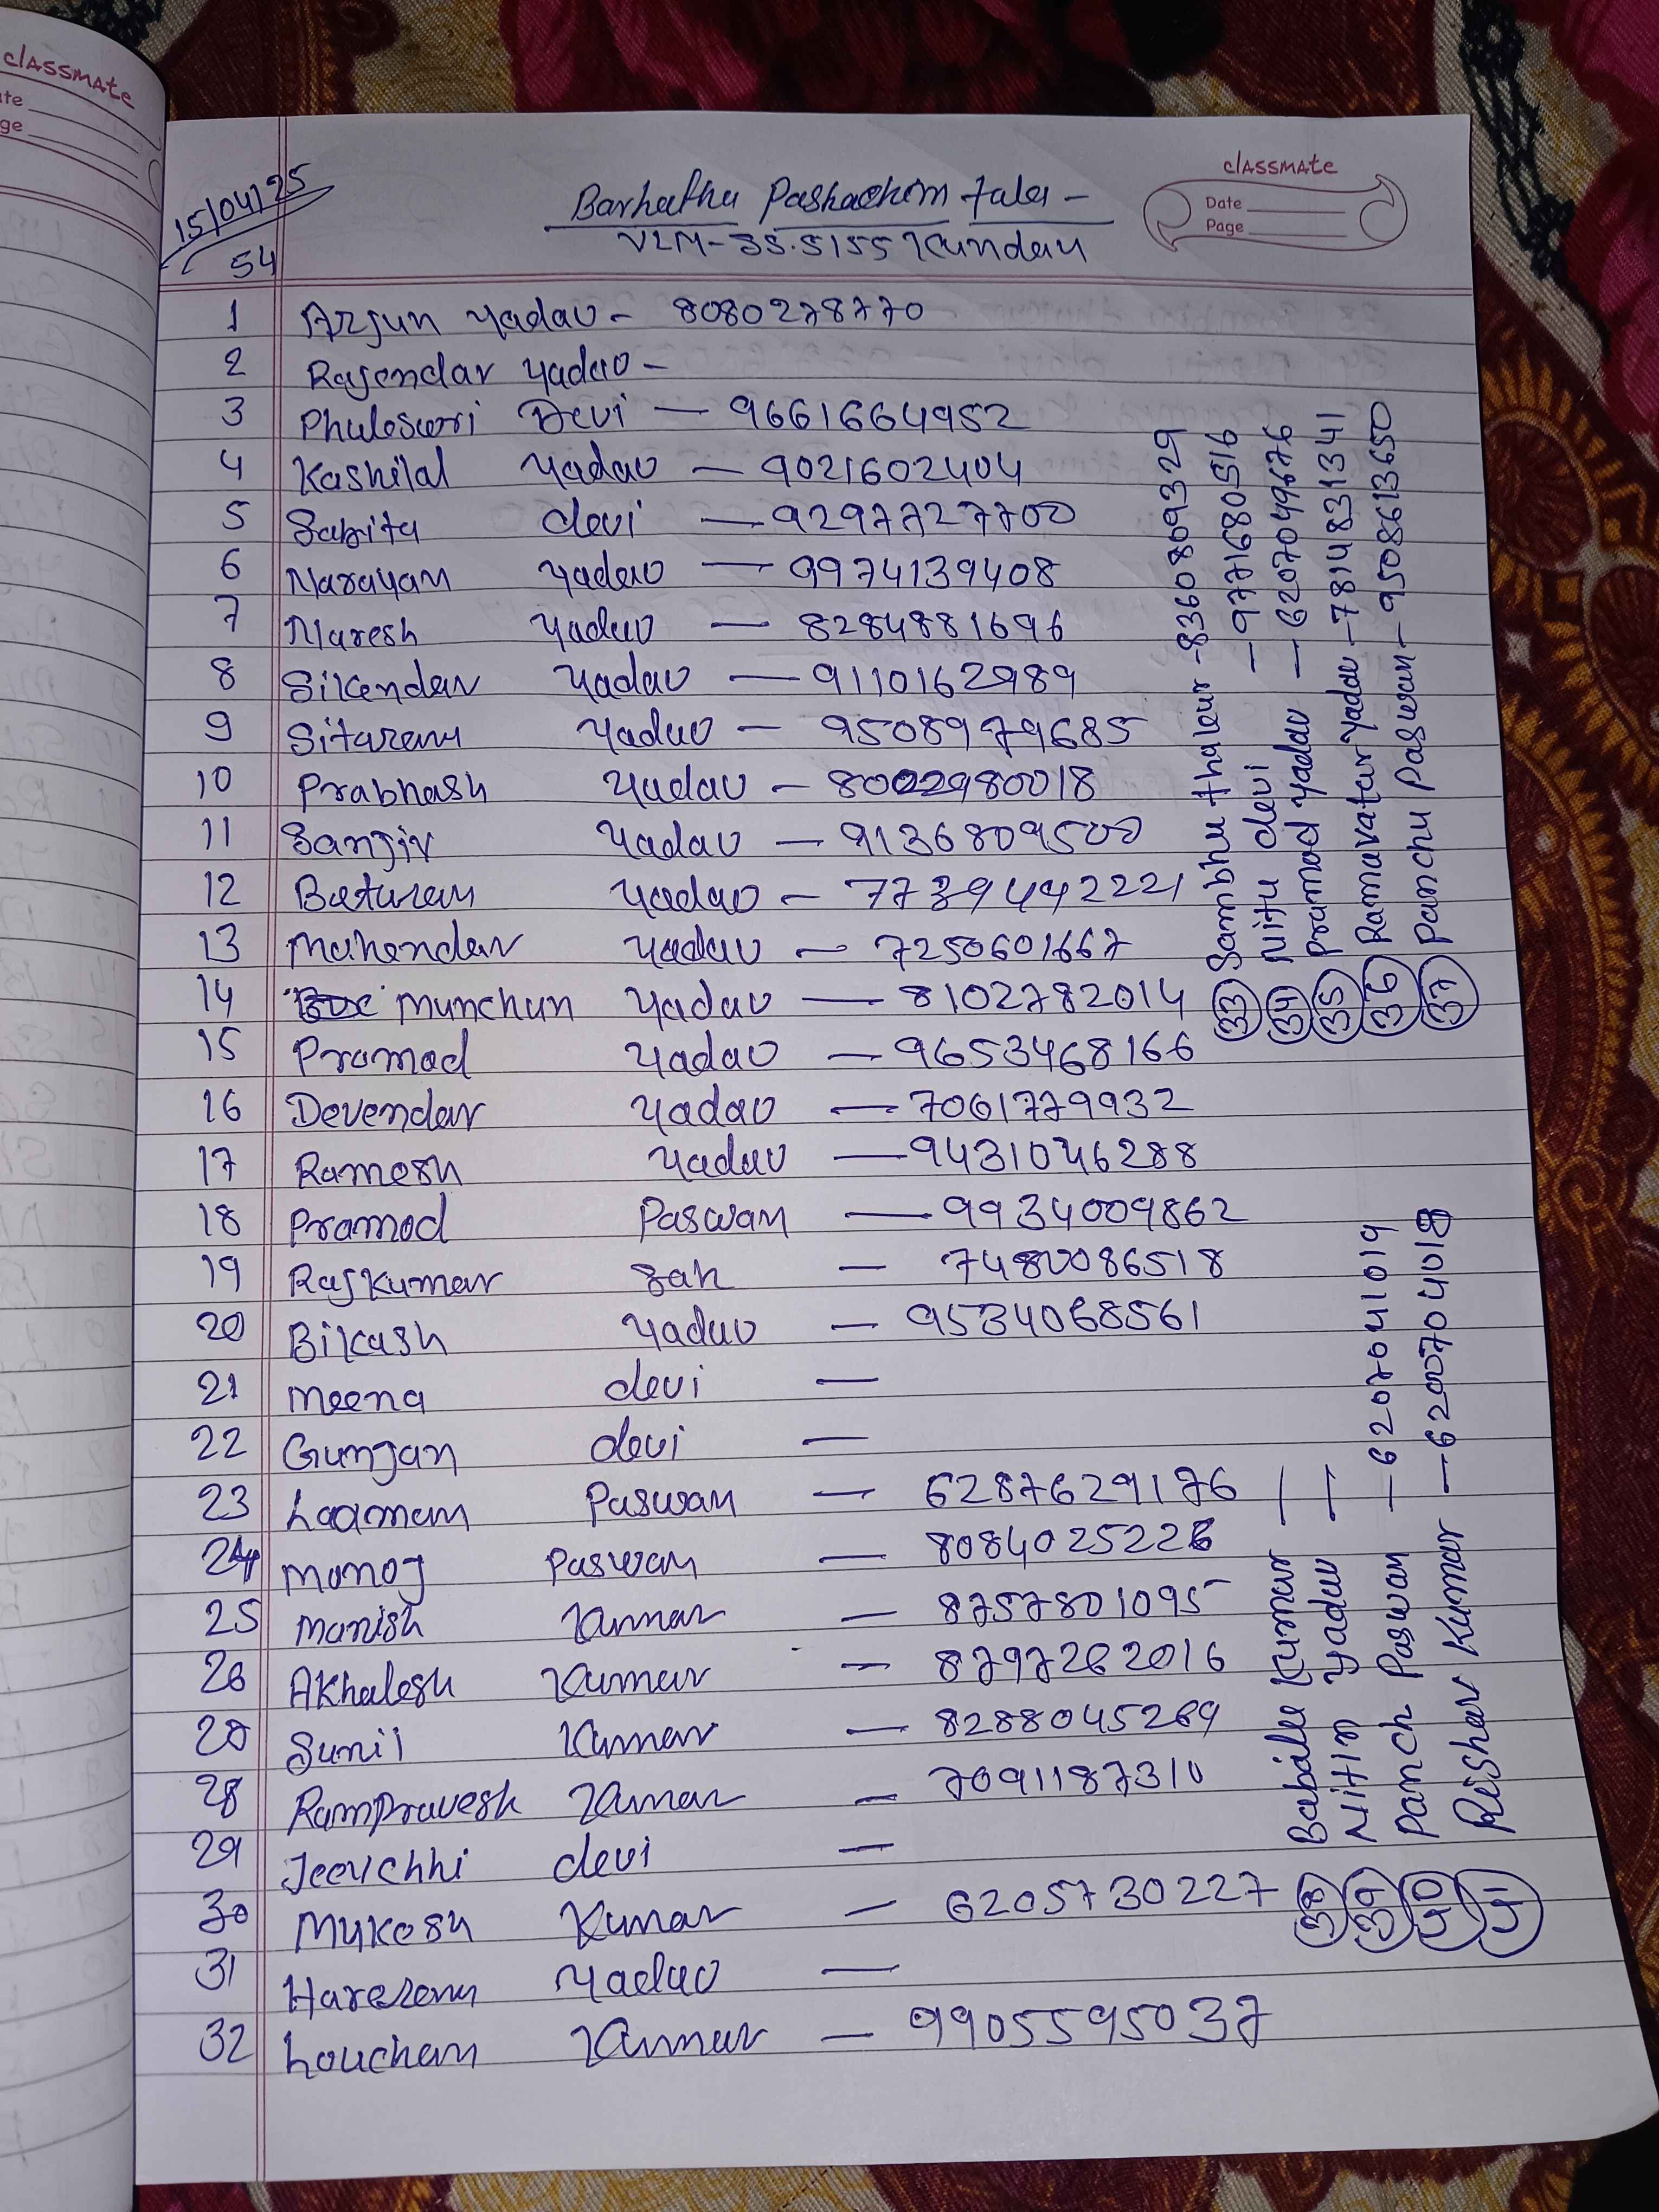 classmate
15/04/25
54
Barhathu Pashachim tala -
VLM-35.5155 Kundan
classmate
Date
Page
1 Arjun Yadav - 8080278770
2 Rajendar Yadav -
3 Phuleswri Devi - 9661664952
4 Kashilal Yadav - 9021602404
5 Sabita devi - 9297727700
6 Narayan Yadav - 9974139408
7 Naresh Yadav - 8284881696
8 Sikendar Yadav - 9110162989
9 Sitaram Yadav - 9508979685
10 Prabhash Yadav - 8002980018
11 Sanjiv Yadav - 9136809500
12 Baturan Yadav - 7739442221
13 Mahendar Yadav - 7250601667
14 Munchun Yadav - 8102782014
15 Pramod Yadav - 9653468166
16 Devendar Yadav - 7061779932
17 Ramesh Yadav - 9431046288
18 Pramod Paswan - 9934009862
19 Rajkumar Sah - 7480086518
20 Bikash Yadav - 9534068561
21 Meena devi -
22 Gunjan devi -
23 Laamam Paswan - 6287629176
24 Monoj Paswan - 8084025226
25 Manish Kumar - 8757801095
26 Akhalesh Kumar - 8797262016
28 Sunil Kumar - 8288045269
28 Rampravesh Kumar - 7091187310
29 Jeevchhi devi -
30 Mukesh Kumar - 6205730227
31 Hareram Yadav -
32 Louchan Kumar - 9905595037
33 Sambhu thakur - 8360809329
34 Nitu devi - 9771680516
35 Pramod Yadav - 6207049676
36 Ramavatar Yadav - 7814831341
37 Panchu Paswan - 9508613650
38 Babalu Kumar -
39 Nitin Yadav -
40 Panch Paswan - 6207041019
41 Rishav Kumar - 6200704018